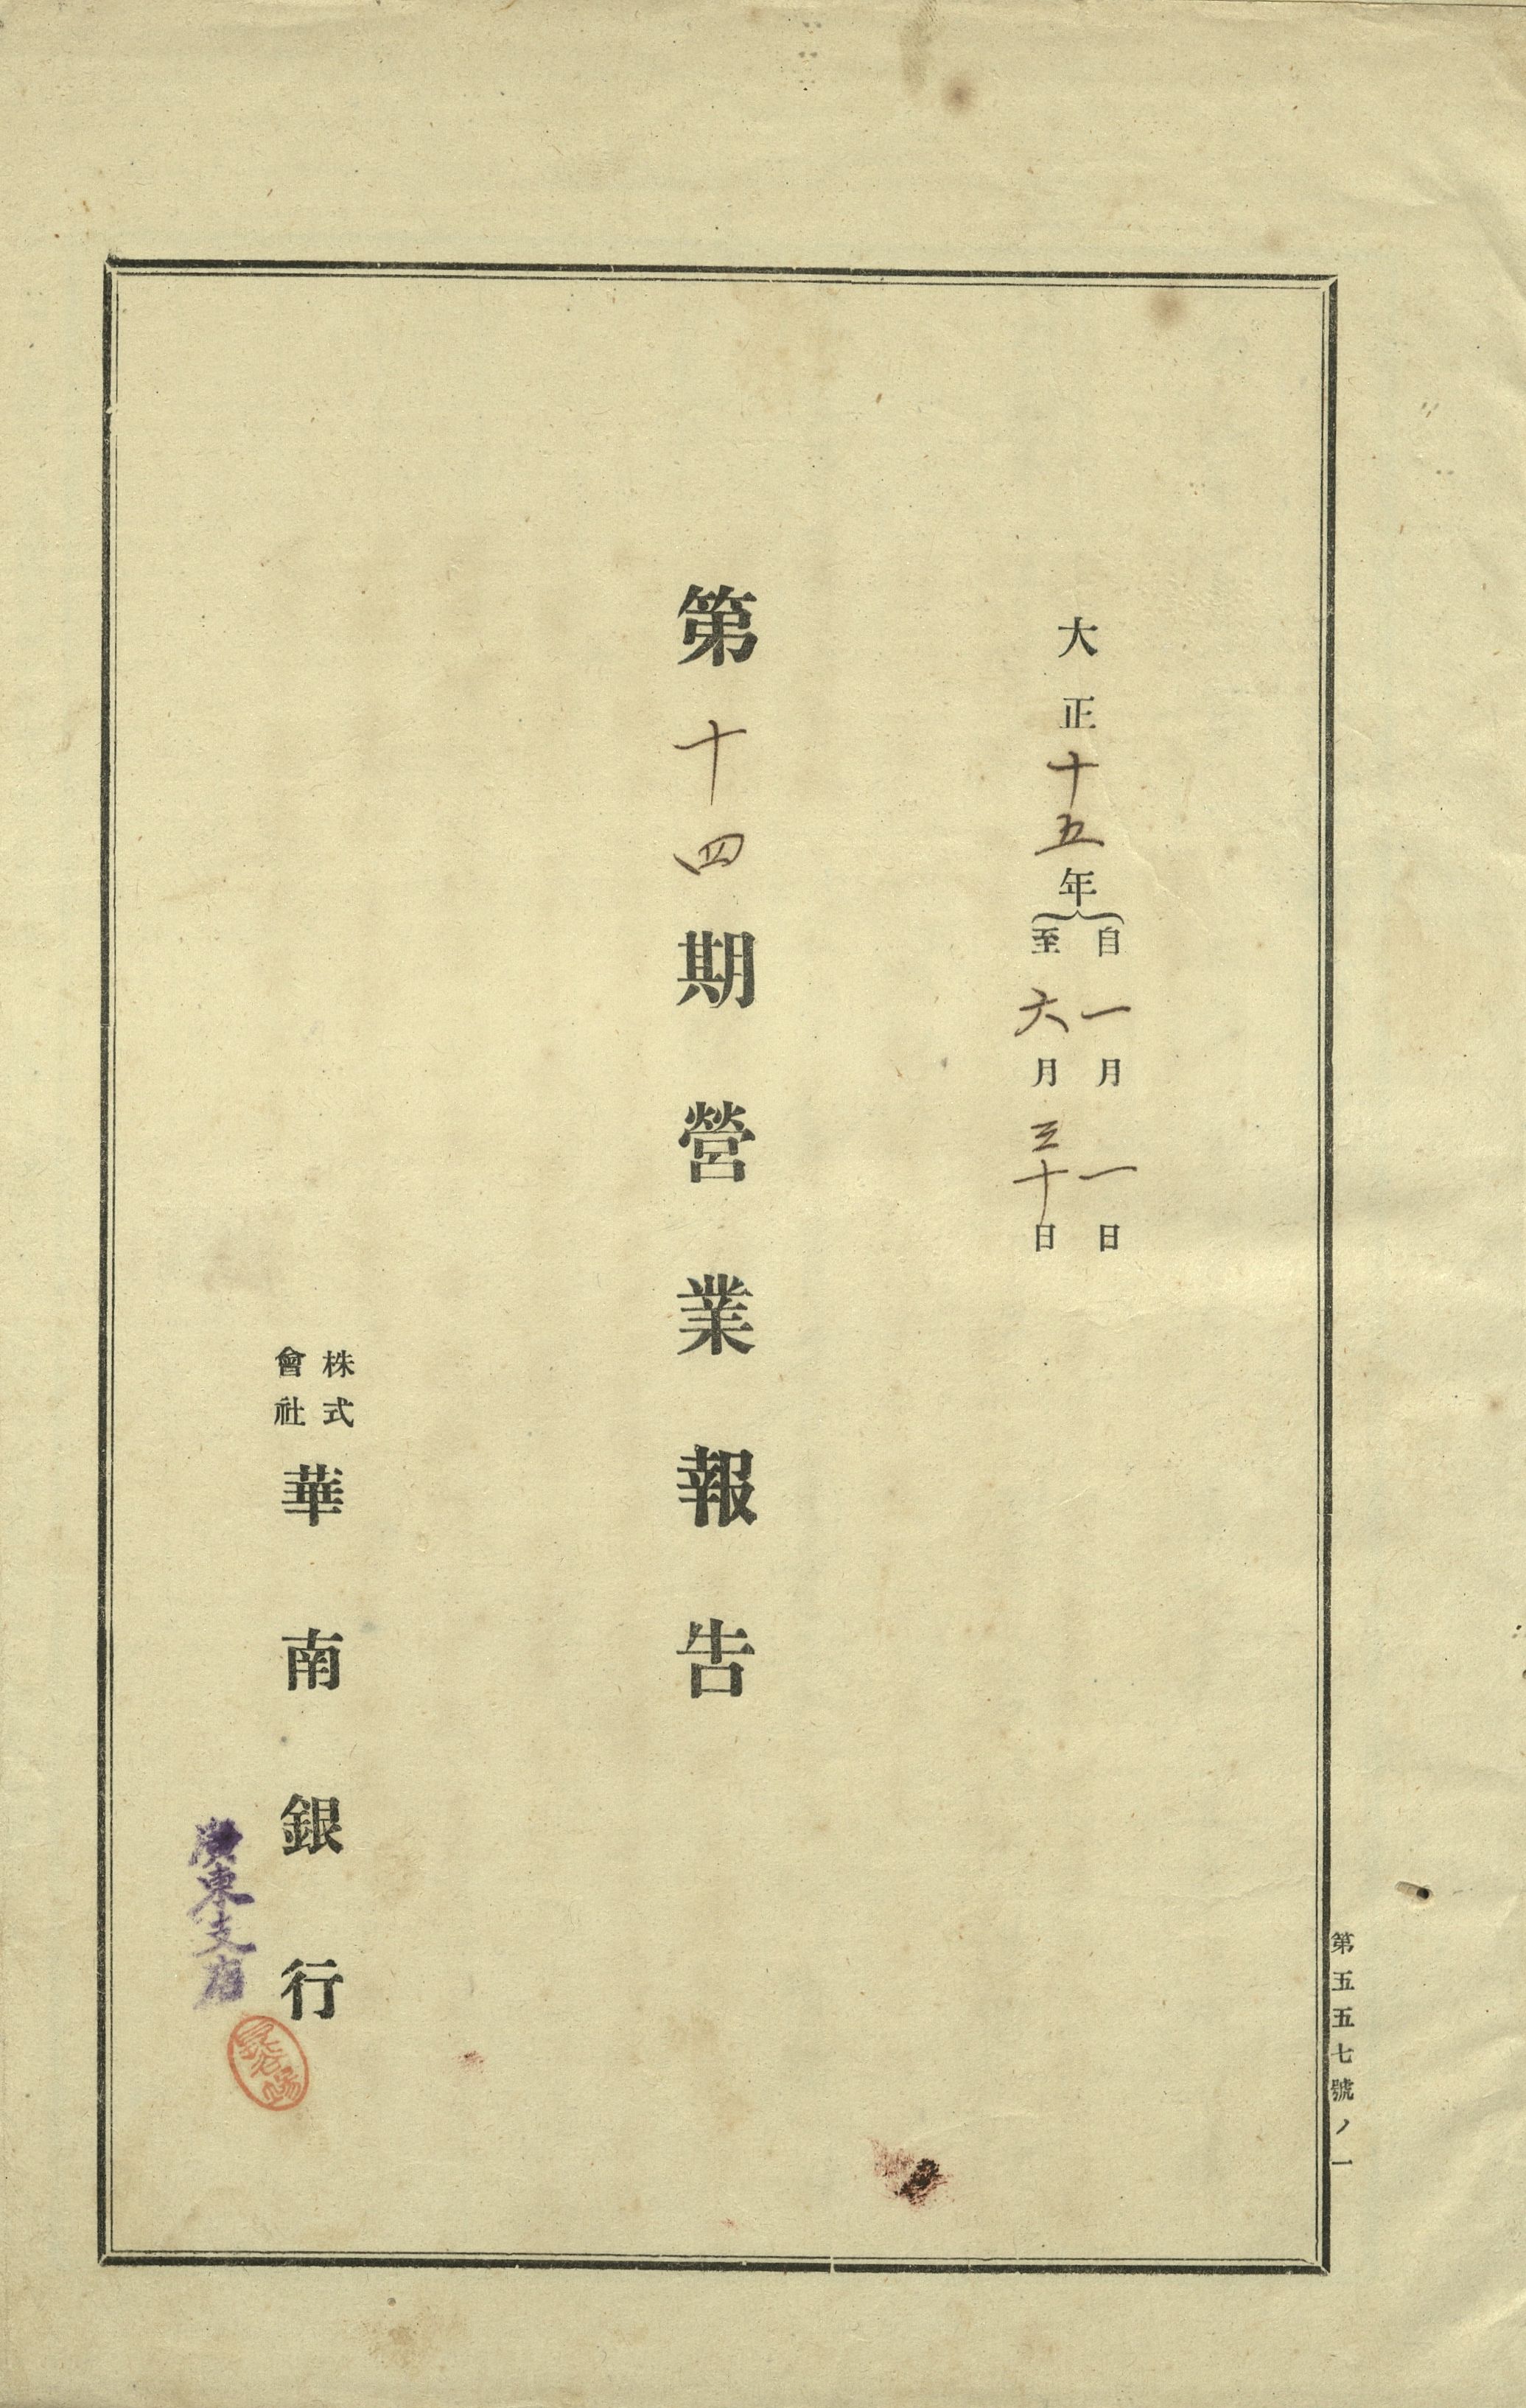 大正十五年
自一月一日
至六月三十日
第十四期營業報告
株式
會社
華南銀行
廣東支店
第五五七號ノ一